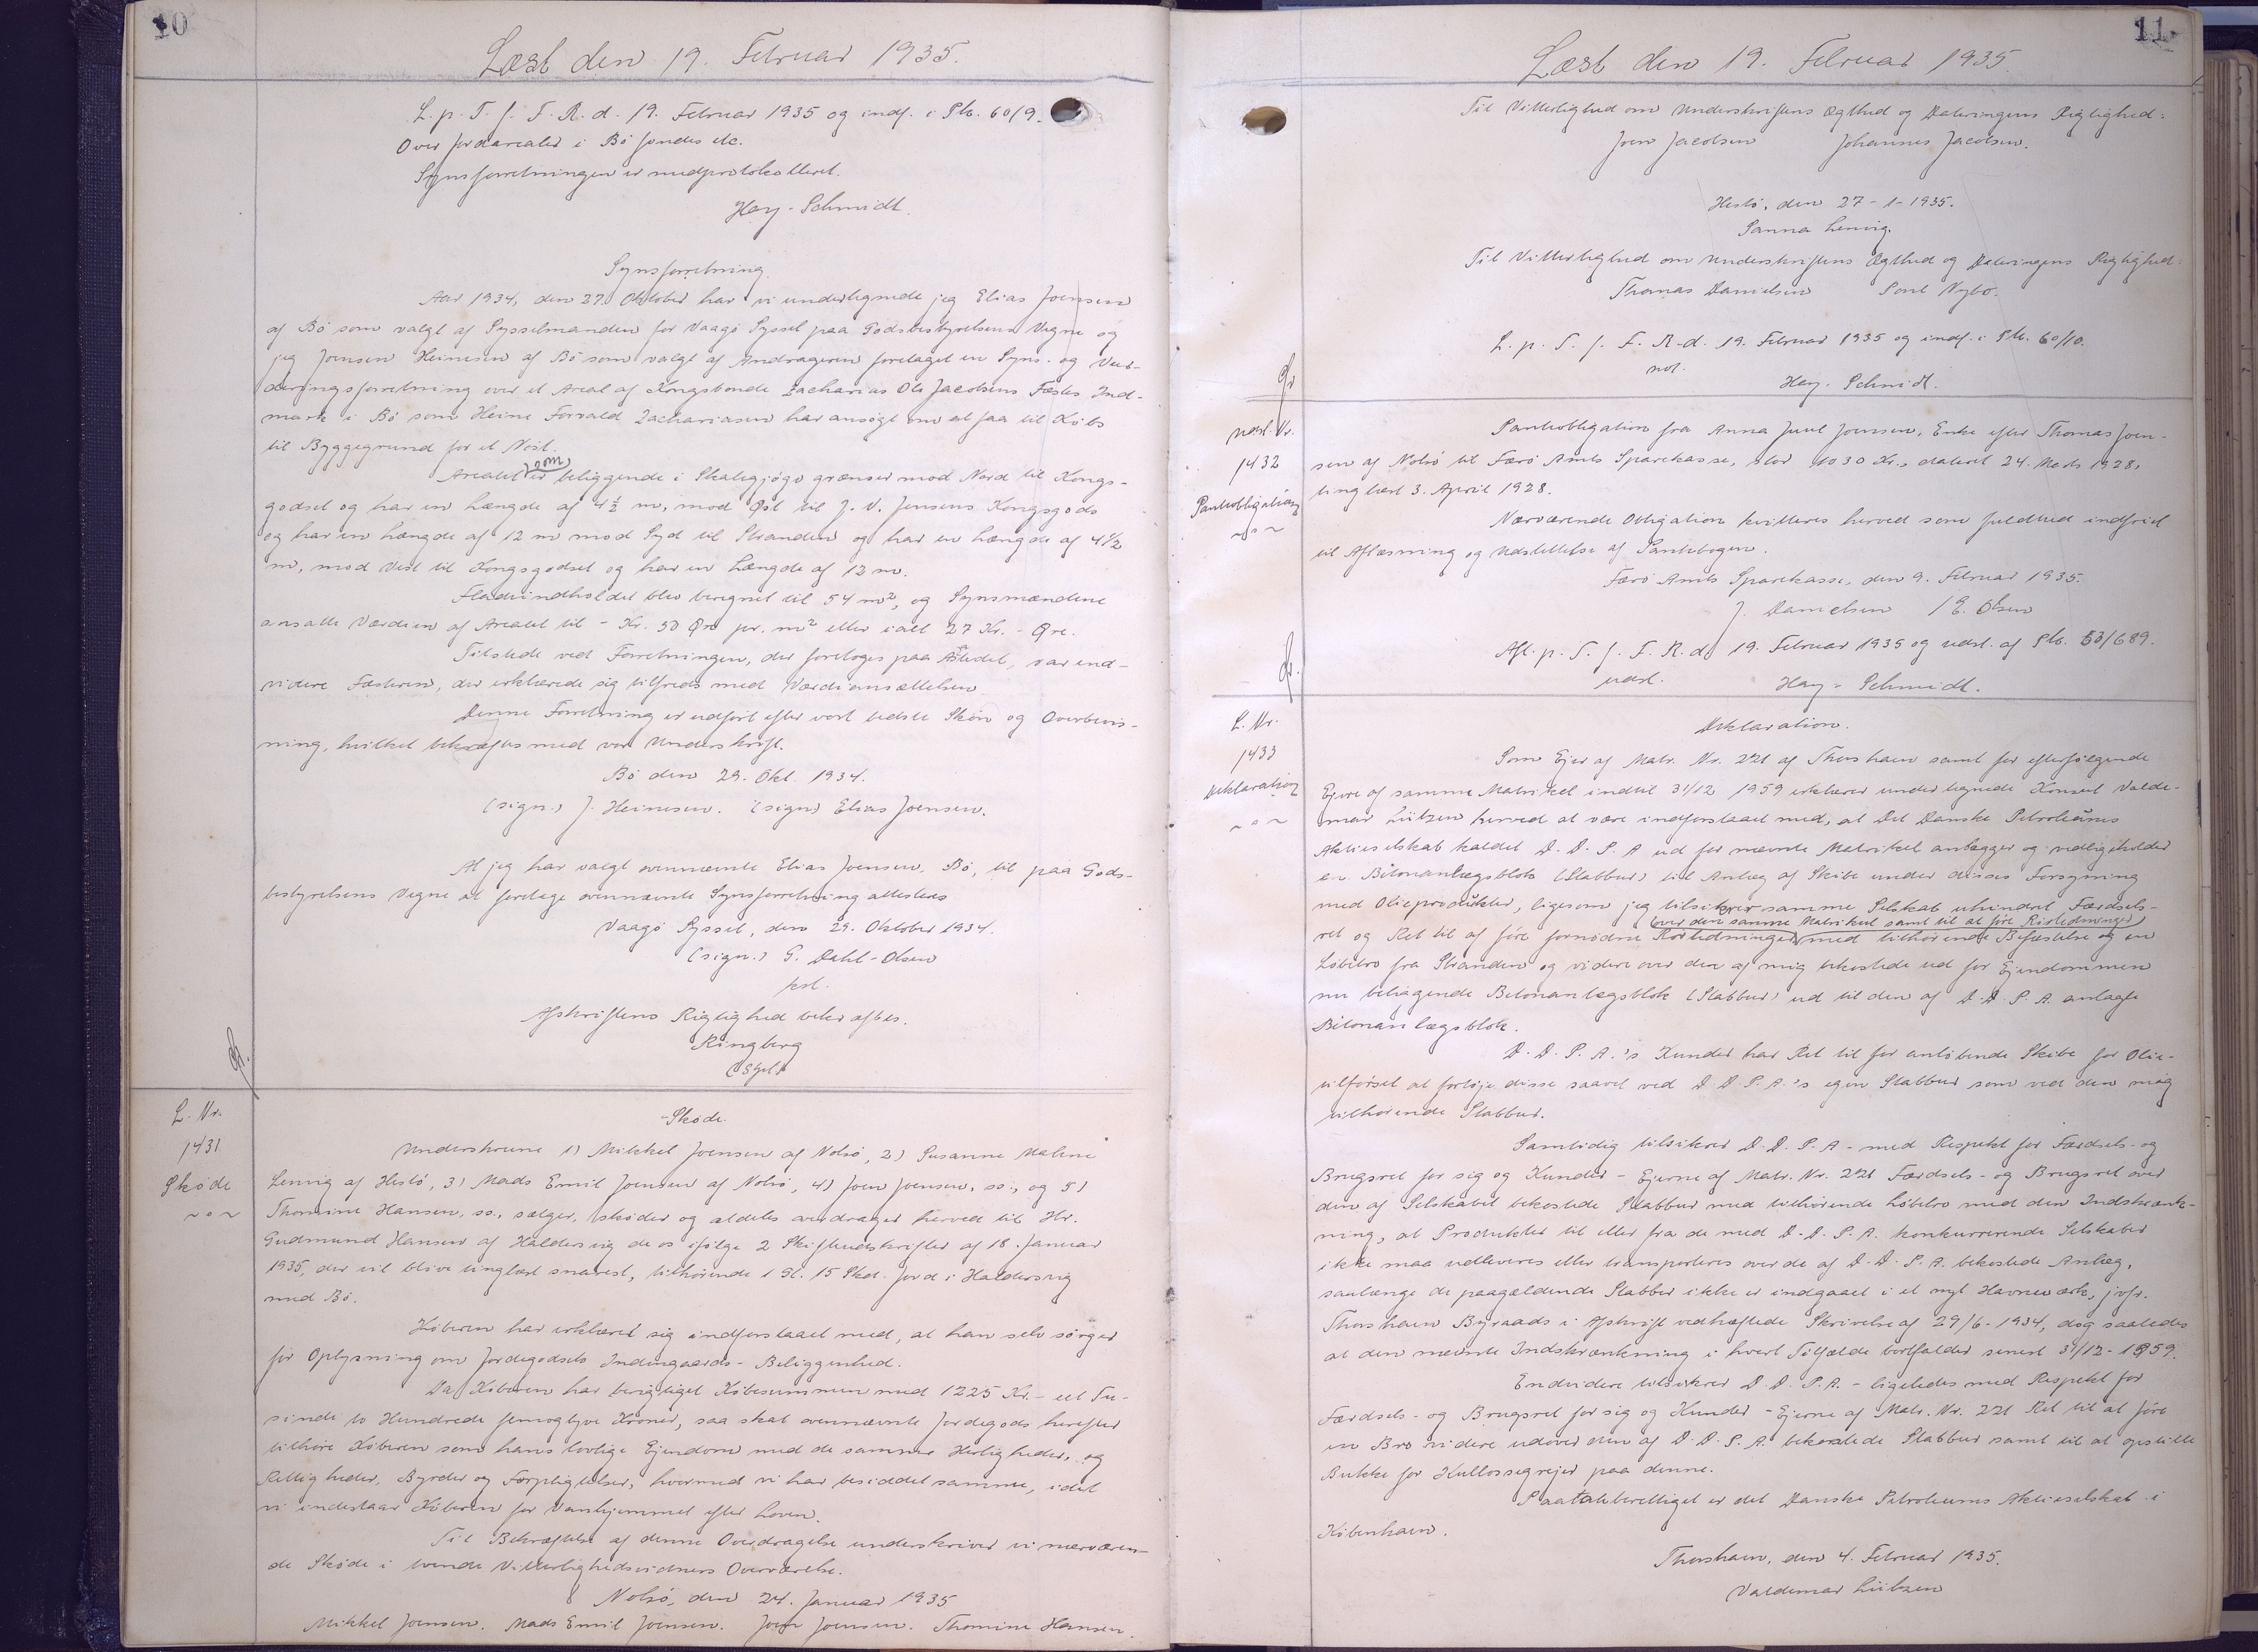 10
Læst den 19. Februar 1935.
L. p. T. f. F. R. d. 19. Februar 1935 og indf. i Pb. 60/9.
Over jordarealer i Bø findes etc.
Synsforretningen er medprotokolleret.
Hey-Schmidt.
Synsforretning.
Aar 1934, den 27. Oktober har vi undertegnede jeg Elias Joensen
af Bø som valgt af Sysselmanden for Vaagø Syssel paa Godsbestyrelsens Vegne og
jeg Joensen Heinesen af Bø som valgt af Andrageren foretaget en Syns- og Vur-
deringsforretning over et Areal af Kongsbonde Zacharias Ole Jacobsens Fæstes Ind-
mark i Bø som Heine Torvald Zachariasen har ansøgt om at faa til Købs
til Byggegrund for et Nøst.
Arealet som er beliggende i Skalegjógv grænser mod Nord til Kongs-
godset og har en Længde af 4½ m, mod Øst til J. V. Jensens Kongsgods
og har en Længde af 12 m mod Syd til Stranden og har en Længde af 4½
m, mod Vest til Kongsgodset og har en Længde af 12 m.
Fladeindholdet blev beregnet til 54 m², og Synsmændene
ansatte Værdien af Arealet til - Kr. 50 Øre pr. m² eller ialt 27 Kr. - Øre.
Tilstede ved Forretningen, der foretoges paa Aastedet, var end-
videre Fæsteren, der erklærede sig tilfreds med Værdiansættelsen.
Denne Forretning er udført efter vort bedste Skøn og Overbevis-
ning, hvilket bekræftes med vor Underskrift.
Bø den 29. Okt. 1934.
(sign.) J. Heinesen. (sign) Elias Joensen.
At jeg har valgt ovennævnte Elias Joensen, Bø, til paa Gods-
bestyrelsens Vegne at foretage ovennævnte Synsforretning attesteres
Vaagø Syssel, den 29. Oktober 1934.
(sign.) G. Dahl-Olsen
kst.
Afskriftens Rigtighed bekræftes.
Ringberg
(Segl)
L. Nr.
1431
Skøde
~ o ~
Skøde.
Underskrevne 1) Mikkel Joensen af Nolsø, 2) Susanne Maline
Lenvig af Hestø, 3) Mads Emil Joensen af Nolsø, 4) Joen Joensen, ss., og 5)
Thomine Hansen, ss., sælger, skøder og aldeles overdrager herved til Hr.
Gudmund Hansen af Haldersvig de os ifølge 2 Skifteudskrifter af 18. Januar
1935, der vil blive tinglæst snarest, tilhørende 1 Gl. 15 Skd. Jord i Haldersvig
med Bø.
Køberen har erklæret sig indforstaaet med, at han selv sørger
for Oplysning om Jordegodsets Indengaards-Beliggenhed.
Da Køberen har berigtiget Købesummen med 1225 Kr. - eet Tu-
sinde to Hundrede femogtyve Kroner, saa skal ovennævnte Jordegods herefter
tilhøre Køberen som hans lovlige Ejendom med de samme Herligheder, og
Rettigheder, Byrder og Forpligtelser, hvormed vi har besiddet samme, idet
vi indestaar Køberen for Vanhjemmel efter Loven.
Til Bekræftelse af denne Overdragelse underskriver vi nærværen-
de Skøde i tvende Vitterlighedsvidners Overværelse.
Nolsø, den 24. Januar 1935
Mikkel Joensen. Mads Emil Joensen. Joen Joensen. Thomine Hansen.
11
Læst den 19. Februar 1935.
Til Vitterlighed om Underskriftens Ægthed og Dateringens Rigtighed:
Joen Jacobsen Johannes Jacobsen.
Hestø, den 27-1-1935.
Sanna Lenvig.
Til Vitterlighed om Underskriftens Ægthed og Dateringens Rigtighed:
Thomas Danielsen Poul Nybo.
L. p. T. f. F. R. d. 19. Februar 1935 og indf. i Pb. 60/10.
not.
Hey-Schmidt.
udsl. Nr.
1432
Panteobligation
~ o ~
Panteobligation fra Anna Juul Joensen, Enke efter Thomas Joen-
sen af Nolsø til Færø Amts Sparekasse, stor 1030 Kr., dateret 24. Marts 1928,
tinglæst 3. April 1928.
Nærværende Obligation kvitteres herved som fuldtud indfriet
til Aflæsning og Udslettelse af Pantebogen.
Færø Amts Sparekasse, den 9. Februar 1935.
J. Danielsen / E. Olsen
Afl. p. T. f. F. R. d. 19. Februar 1935 og udsl. af Pb. 53/689.
udsl.
Hey-Schmidt.
L. Nr.
1433
Deklaration
~ o ~
Deklaration.
Som Ejer af Matr. Nr. 221 af Thorshavn samt for efterfølgende
Ejere af samme Matrikel indtil 31/12 1959 erklærer undertegnede Konsul Valde-
mar Lützen herved at være indforstaaet med, at Det Danske Petroleums
Aktieselskab kaldet D. D. P. A ud for nævnte Matrikel anlægger og vedligeholder
en Betonanlægsblok (Slabbur) til Anlæg af Skibe under disses Forsyning
med Olieprodukter, ligesom jeg tilsikrer samme Selskab uhindret Færdsels-
over den samme Matrikel samt til at føre Rørledninger
ret og Ret til af føre fornødne Rørledninger med tilhørende Befæstelse og en
Løbebro fra Stranden og videre over den af mig bekostede ud for Ejendommen
nu beliggende Betonanlægsblok (Slabbur) ud til den af D. D. P. A. anlagte
Betonanlægsblok.
D. D. P. A.'s Kunder har Ret til for anløbende Skibe for Olie-
tilførsel at fortøje disse saavel ved D. D. P. A.'s egen Slabbur som ved den mig
tilhørende Slabbur.
Samtidig tilsikrer D. D. P. A - med Respekt for Færdsels- og
Brugsret for sig og Kunder - Ejerne af Matr. Nr. 221 Færdsels- og Brugsret over
den af Selskabet bekostede Slabbur med tilhørende Løbebro med den Indskrænk-
ning, at Produkter til eller fra de med D. D. P. A. konkurrerende Selskaber
ikke maa udleveres eller transporteres over de af D. D. P. A. bekostede Anlæg,
saalænge de paagældende Slabbur ikke er indgaaet i et nyt Havneværk, jvfr.
Thorshavn Byraads i Afskrift vedhæftede Skrivelse af 29/6-1934, dog saaledes
at den nævnte Indskrænkning i hvert Tilfælde bortfalder senest 31/12-1959.
Endvidere tilsikrer D. D. P. A. - ligeledes med Respekt for
Færdsels- og Brugsret for sig og Kunder - Ejerne af Matr. Nr. 221 Ret til at føre
en Bro videre udover den af D. D. P. A. bekostede Slabbur samt til at opstille
Bukke for Kullossegrejer paa denne.
Paataleberettiget er det Danske Petroleums Aktieselskab i
København.
Thorshavn, den 4. Februar 1935.
Valdemar Lützen